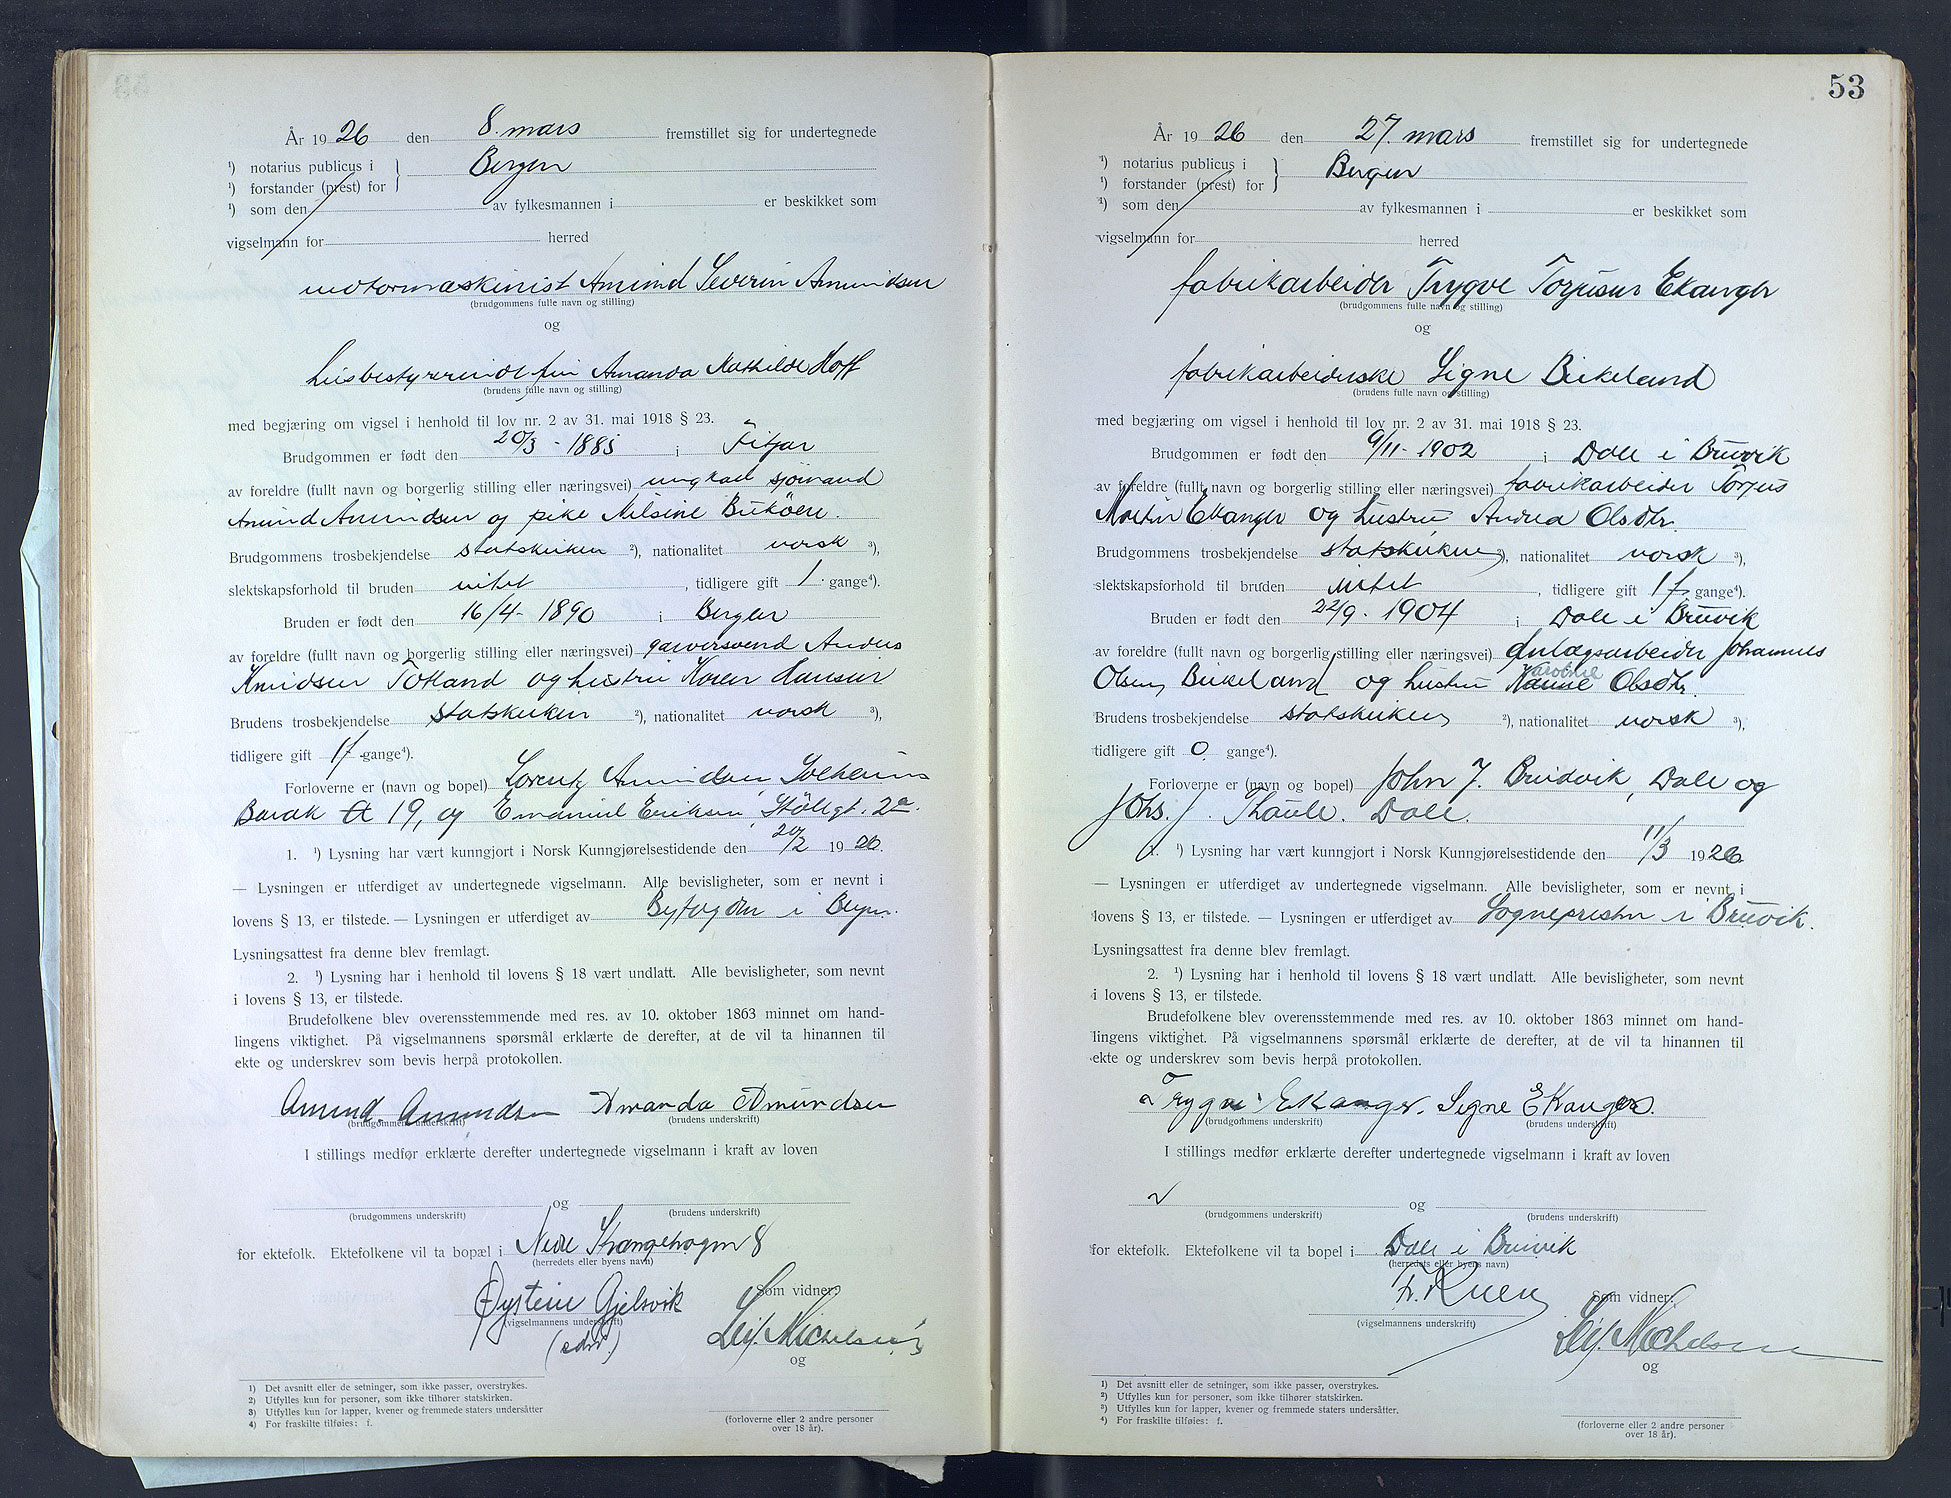 År 1926 den 8. mars fremstillet sig for undertegnede
¹) notarius publicus i
¹) forstander (prest) for } Bergen
¹) som den av fylkesmannen i er beskikket som
vigselmann for herred
motormaskinist Amund Severin Amundsen
(brudgommens fulle navn og stilling)
og
husbestyrerinde fru Amanda Mathilde Hoff
(brudens fulle navn og stilling)
med begjæring om vigsel i henhold til lov nr. 2 av 31. mai 1918 § 23.
Brudgommen er født den 20/3 - 1885 i Fitjar
av foreldre (fullt navn og borgerlig stilling eller næringsvei) ungkarl sjømand
Amund Amundsen og pike Nilsine
Brudgommens trosbekjendelse statskirken ²), nationalitet norsk ³),
slektskapsforhold til bruden intet, tidligere gift 1 gange⁴).
Bruden er født den 16/4 - 1890 i Bergen
av foreldre (fullt navn og borgerlig stilling eller næringsvei) garversvend Anders
Knudsen Totland og hustru Karen Hansen
Brudens trosbekjendelse statskirken ²), nationalitet norsk ³),
tidligere gift 1 f gange⁴).
Forloverne er (navn og bopel) Lorentz Amundsen, Solheims
Barak A 19, og Emanuel Eriksen, Stölegt. 2a.
1. ¹) Lysning har vært kunngjort i Norsk Kunngjørelsestidende den 20/2 1926.
— Lysningen er utferdiget av undertegnede vigselmann. Alle bevisligheter, som er nevnt i
lovens § 13, er tilstede. — Lysningen er utferdiget av Byfogden i Bergen.
Lysningsattest fra denne blev fremlagt.
2. ¹) Lysning har i henhold til lovens § 18 vært undlatt. Alle bevisligheter, som nevnt
i lovens § 13, er tilstede.
Brudefolkene blev overensstemmende med res. av 10. oktober 1863 minnet om hand-
lingens viktighet. På vigselmannens spørsmål erklærte de derefter, at de vil ta hinannen til
ekte og underskrev som bevis herpå protokollen.
Amund. Amundsen Amanda Amundsen
(brudgommens underskrift) (brudens underskrift)
I stillings medfør erklærte derefter undertegnede vigselmann i kraft av loven
og
(brudgommens underskrift) (brudens underskrift)
for ektefolk. Ektefolkene vil ta bopæl i Nedre Strangehagen 8
(herredets eller byens navn)
Som vidner:
Øystein Gjelsvik
(vigselmannens underskrift)
(edsv.) Leif. Michelsen
og
1) Det avsnitt eller de setninger, som ikke passer, overstrykes.
2) Utfylles kun for personer, som ikke tilhører statskirken.
3) Utfylles kun for lapper, kvener og fremmede staters undersåtter
4) For fraskilte tilføies: f.
(forloverne eller 2 andre personer
over 18 år).
53
År 1926 den 27. mars fremstillet sig for undertegnede
¹) notarius publicus i
¹) forstander (prest) for } Bergen
¹) som den av fylkesmannen i er beskikket som
vigselmann for herred
fabrikarbeider Trygve Torjusen Ekanger
(brudgommens fulle navn og stilling)
og
fabrikarbeiderske Signe Birkeland
(brudens fulle navn og stilling)
med begjæring om vigsel i henhold til lov nr. 2 av 31. mai 1918 § 23.
Brudgommen er født den 9/11 - 1902 i Dale i Bruvik
av foreldre (fullt navn og borgerlig stilling eller næringsvei) fabrikarbeider Torjus
Martin Ekanger og hustru Andrea Olsdtr.
Brudgommens trosbekjendelse statskirken ²), nationalitet norsk ³),
slektskapsforhold til bruden intet, tidligere gift 1 f. gange⁴).
Bruden er født den 22/9 - 1904 i Dale i Bruvik
av foreldre (fullt navn og borgerlig stilling eller næringsvei) Anlægsarbeider Johannes
Olsen Birkeland og hustru Olsdtr.
Brudens trosbekjendelse statskirken ²), nationalitet norsk ³),
tidligere gift 0 gange⁴).
Forloverne er (navn og bopel) John J. Bruvik, Dale og
Johs. J. Thaule. Dale.
1. ¹) Lysning har vært kunngjort i Norsk Kunngjørelsestidende den 11/3 1926
— Lysningen er utferdiget av undertegnede vigselmann. Alle bevisligheter, som er nevnt i
lovens § 13, er tilstede. — Lysningen er utferdiget av Sognepresten i Bruvik.
Lysningsattest fra denne blev fremlagt.
2. ¹) Lysning har i henhold til lovens § 18 vært undlatt. Alle bevisligheter, som nevnt
i lovens § 13, er tilstede.
Brudefolkene blev overensstemmende med res. av 10. oktober 1863 minnet om hand-
lingens viktighet. På vigselmannens spørsmål erklærte de derefter, at de vil ta hinannen til
ekte og underskrev som bevis herpå protokollen.
Trygve Ekanger. Signe Ekanger.
(brudgommens underskrift) (brudens underskrift)
I stillings medfør erklærte derefter undertegnede vigselmann i kraft av loven
og
(brudgommens underskrift) (brudens underskrift)
for ektefolk. Ektefolkene vil ta bopel i Dale i Bruvik
(herredets eller byens navn)
Som vidner:
(vigselmannens underskrift)
Leif. Michelsen
og
1) Det avsnitt eller de setninger, som ikke passer, overstrykes.
2) Utfylles kun for personer, som ikke tilhører statskirken.
3) Utfylles kun for lapper, kvener og fremmede staters undersåtter.
4) For fraskilte tilføies: f.
(forloverne eller 2 andre personer
over 18 år).